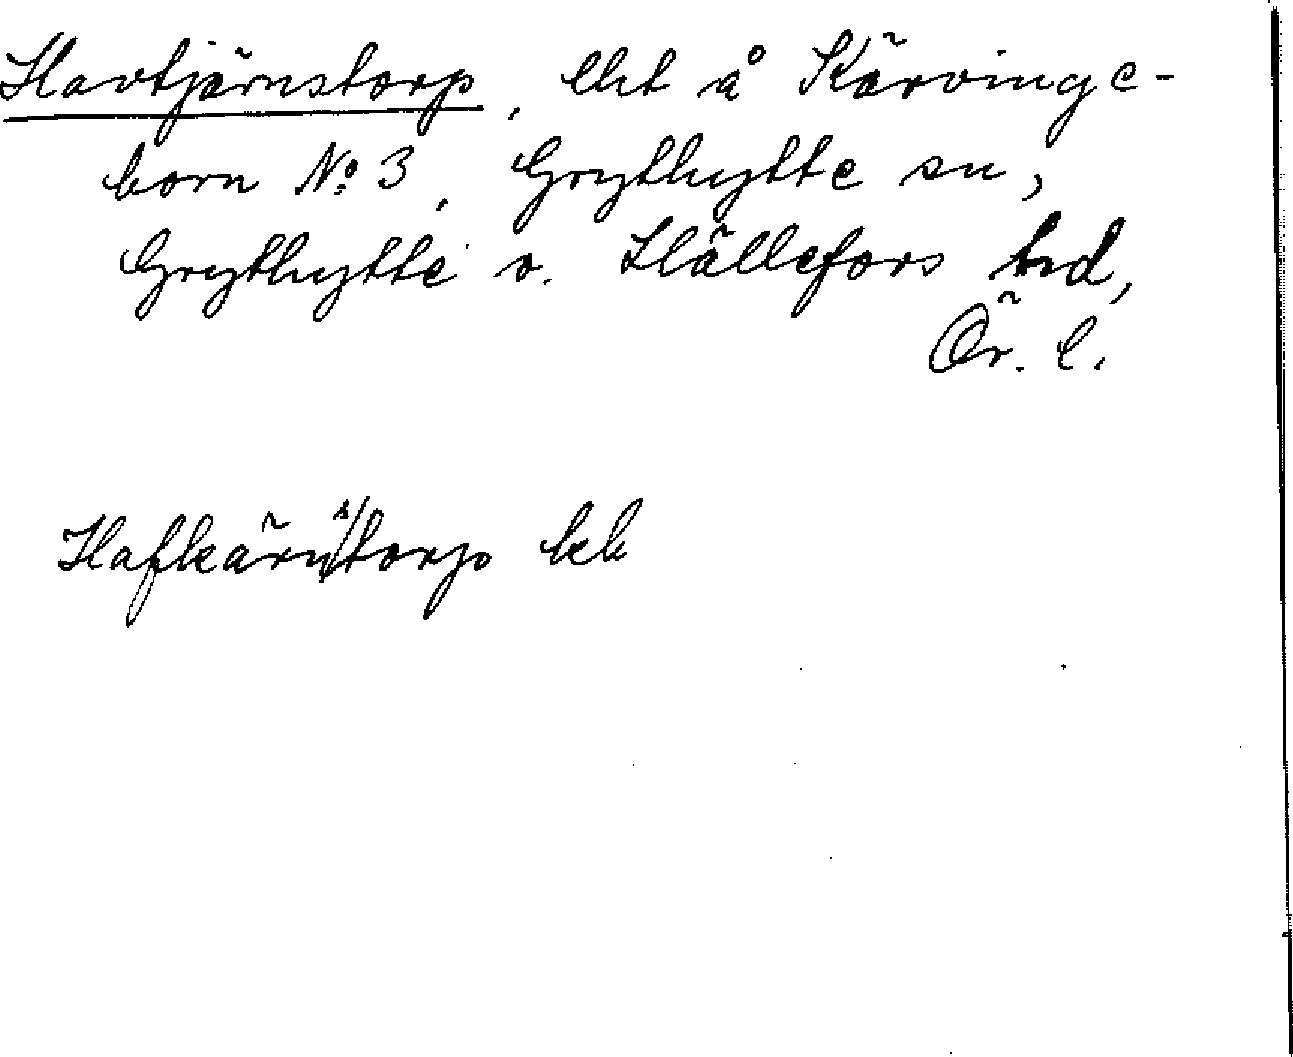 Havtjärnstorp, lht å Kärvinge-
born No 3, Grythytte sn,
Grythytte o. Hällefors bd,
Ör. l.
Hafkärnstorp kb